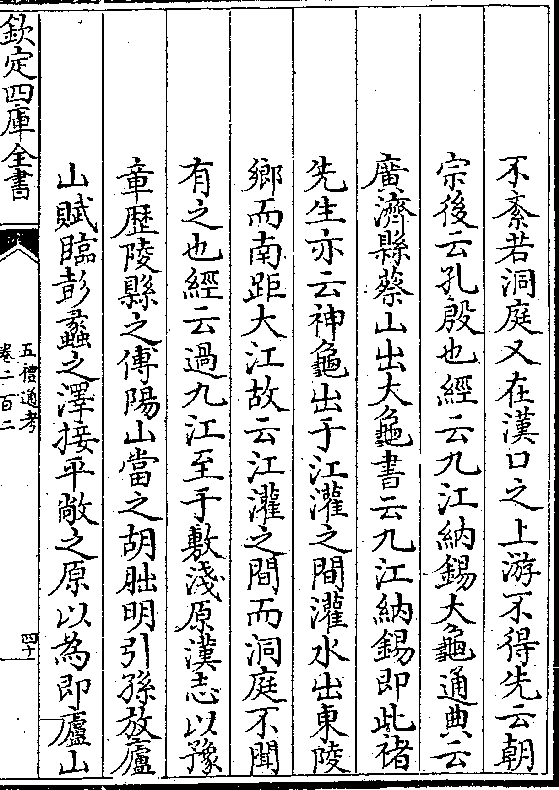 不紊若洞庭又在漢口之上游不得先云朝
宗後云孔殷也經云九江納錫大龜通典云
廣濟縣蔡山出大龜書云九江納錫即此褚
先生亦云神龜出于江灌之間灌水出東陵
鄉而南距大江故云江灌之間而洞庭不聞
有之也經云過九江至于敷淺原漢志以豫
章歴陵縣之傅陽山當之胡朏明引孫放廬
山賦臨彭蠡之澤接平敞之原以為即廬山
欽定四庫全書
五禮通考
卷二百二
四十